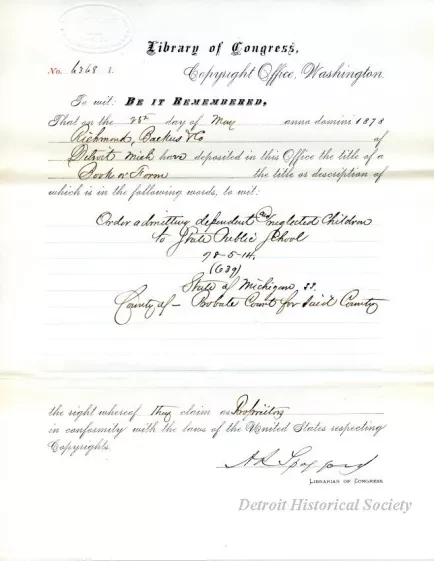 Library of Congress,
No. 6368 I.
Copyright Office, Washington.
To wit: BE IT REMEMBERED,
That on the 25th day of May anno domini 1878
Richmond, Backus & Co of
Detroit Mich have deposited in this Office the title of a
Book or Form the title or description of
which is in the following words, to wit:
Order admitting dependent and neglected Children
to State Public School
78-5-14.
(639)
State of Michigan, ss.
County of — Probate Court for said County
the right whereof they claim as Proprietors
in conformity with the laws of the United States respecting
Copyrights.
A R Spofford
LIBRARIAN OF CONGRESS
Detroit Historical Society